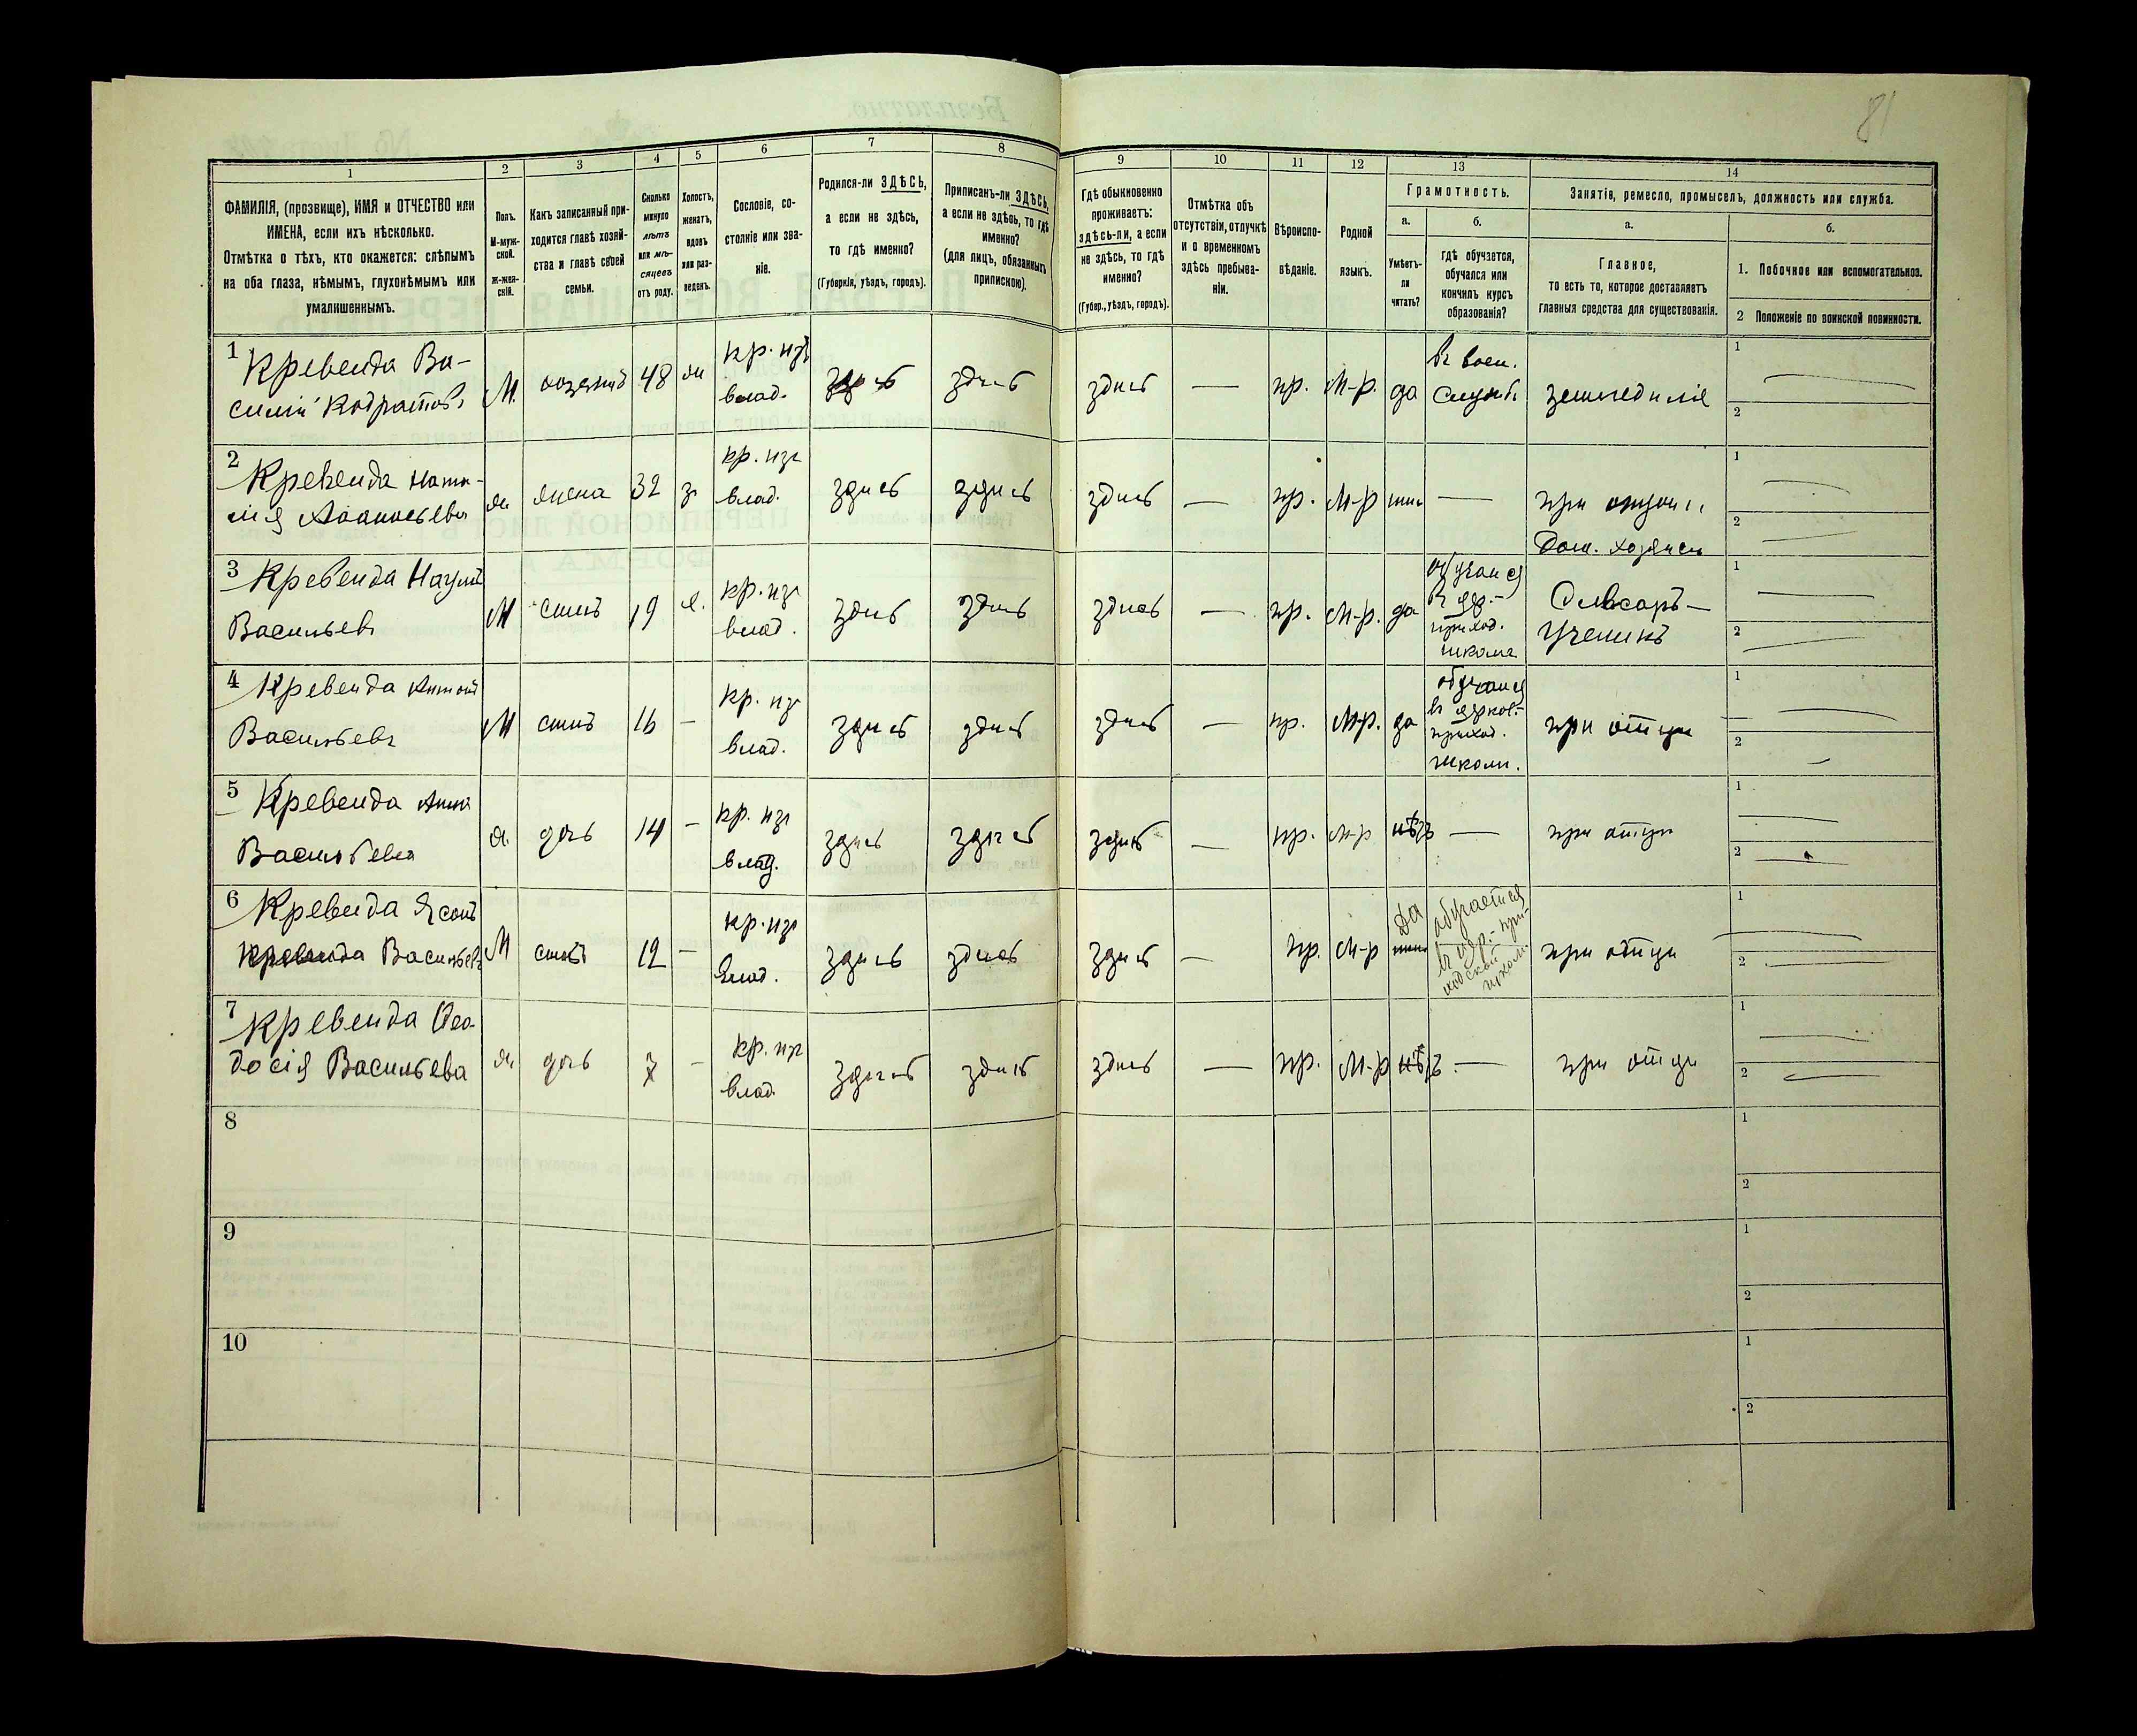 81
1
2
3
4
5
6
7
8
9
10
11
12
13
14
ФАМИЛІЯ, (прозвище), ИМЯ и ОТЧЕСТВО или
ИМЕНА, если ихъ нѣсколько.
Отмѣтка о тѣхъ, кто окажется: слѣпымъ
на оба глаза, нѣмымъ, глухонѣмымъ или
умалишеннымъ.
Полъ.
М-муж-
ской.
ж-жен-
скій.
Какъ записанный при-
ходится главѣ хозяй-
ства и главѣ своей
семьи.
Сколько
минуло
лѣтъ
или мѣ-
сяцевъ
отъ роду.
Холостъ,
женатъ,
вдовъ
или раз-
веденъ.
Сословіе, со-
стояніе или зва-
ніе.
Родился-ли ЗДѢСЬ,
а если не здѣсь,
то гдѣ именно?
(Губернія, уѣздъ, городъ).
Приписанъ-ли ЗДѢСЬ,
а если не здѣсь, то гдѣ
именно?
(для лицъ, обязанныхъ
припискою).
Гдѣ обыкновенно
проживаетъ:
здѣсь-ли, а если
не здѣсь, то гдѣ
именно?
(Губер., уѣздъ, городъ).
Отмѣтка объ
отсутствіи, отлучкѣ
и о временномъ
здѣсь пребыва-
ніи.
Вѣроиспо-
вѣданіе.
Родной
языкъ.
Грамотность.
а.
Умѣетъ-
ли
читать?
б.
гдѣ обучается,
обучался или
кончилъ курсъ
образованія?
Занятія, ремесло, промыселъ, должность или служба.
а.
Главное,
то есть то, которое доставляетъ
главныя средства для существованія.
б.
1. Побочное или вспомогательное.
2 Положеніе по воинской повинности.
1 Кревенда Ва-
силій Кодратовъ
М. хозяинъ 48 ж кр. изъ
влад. здѣсь здѣсь здѣсь — пр. М-р. да въ воен.
службѣ земледѣліе
1
2
2 Кревенда Ната-
лія Афанасьева
ж жена 32 з кр. изъ
влад. здѣсь здѣсь здѣсь — пр. М-р —
Дом. хозяйст
1
2
3 Кревенда Наумъ
Васильевъ
М сынъ 19 х. кр. изъ
влад. здѣсь здѣсь здѣсь — пр. М-р. да обучался
въ цер.-
приход.
школѣ
Слѣсарь—
ученикъ
1
2
4 Кревенда Антонъ
Васильевъ
М сынъ 16 — кр. изъ
влад. здѣсь здѣсь здѣсь — пр. М-р. да обучался
въ церков.-
приход.
школѣ. при отцѣ
1
2
5 Кревенда Анна
Васильева
ж. дочь 14 — кр. изъ
влад. здѣсь здѣсь здѣсь — пр. М-р нѣтъ — при отцѣ
1
2
6 Кревенда Ясонъ
Кревенда Васильевъ
М сынъ 12 — кр. изъ
влад. здѣсь здѣсь здѣсь — пр. М-р да обучается
въ цер.-при-
ходской
школѣ при отцѣ
1
2
7 Кревенда Ѳео-
досія Васильева
ж дочь 7 — кр. изъ
влад. здѣсь здѣсь здѣсь — пр. М-р нѣтъ — при отцѣ
1
2
8
1
2
9
1
2
10
1
2